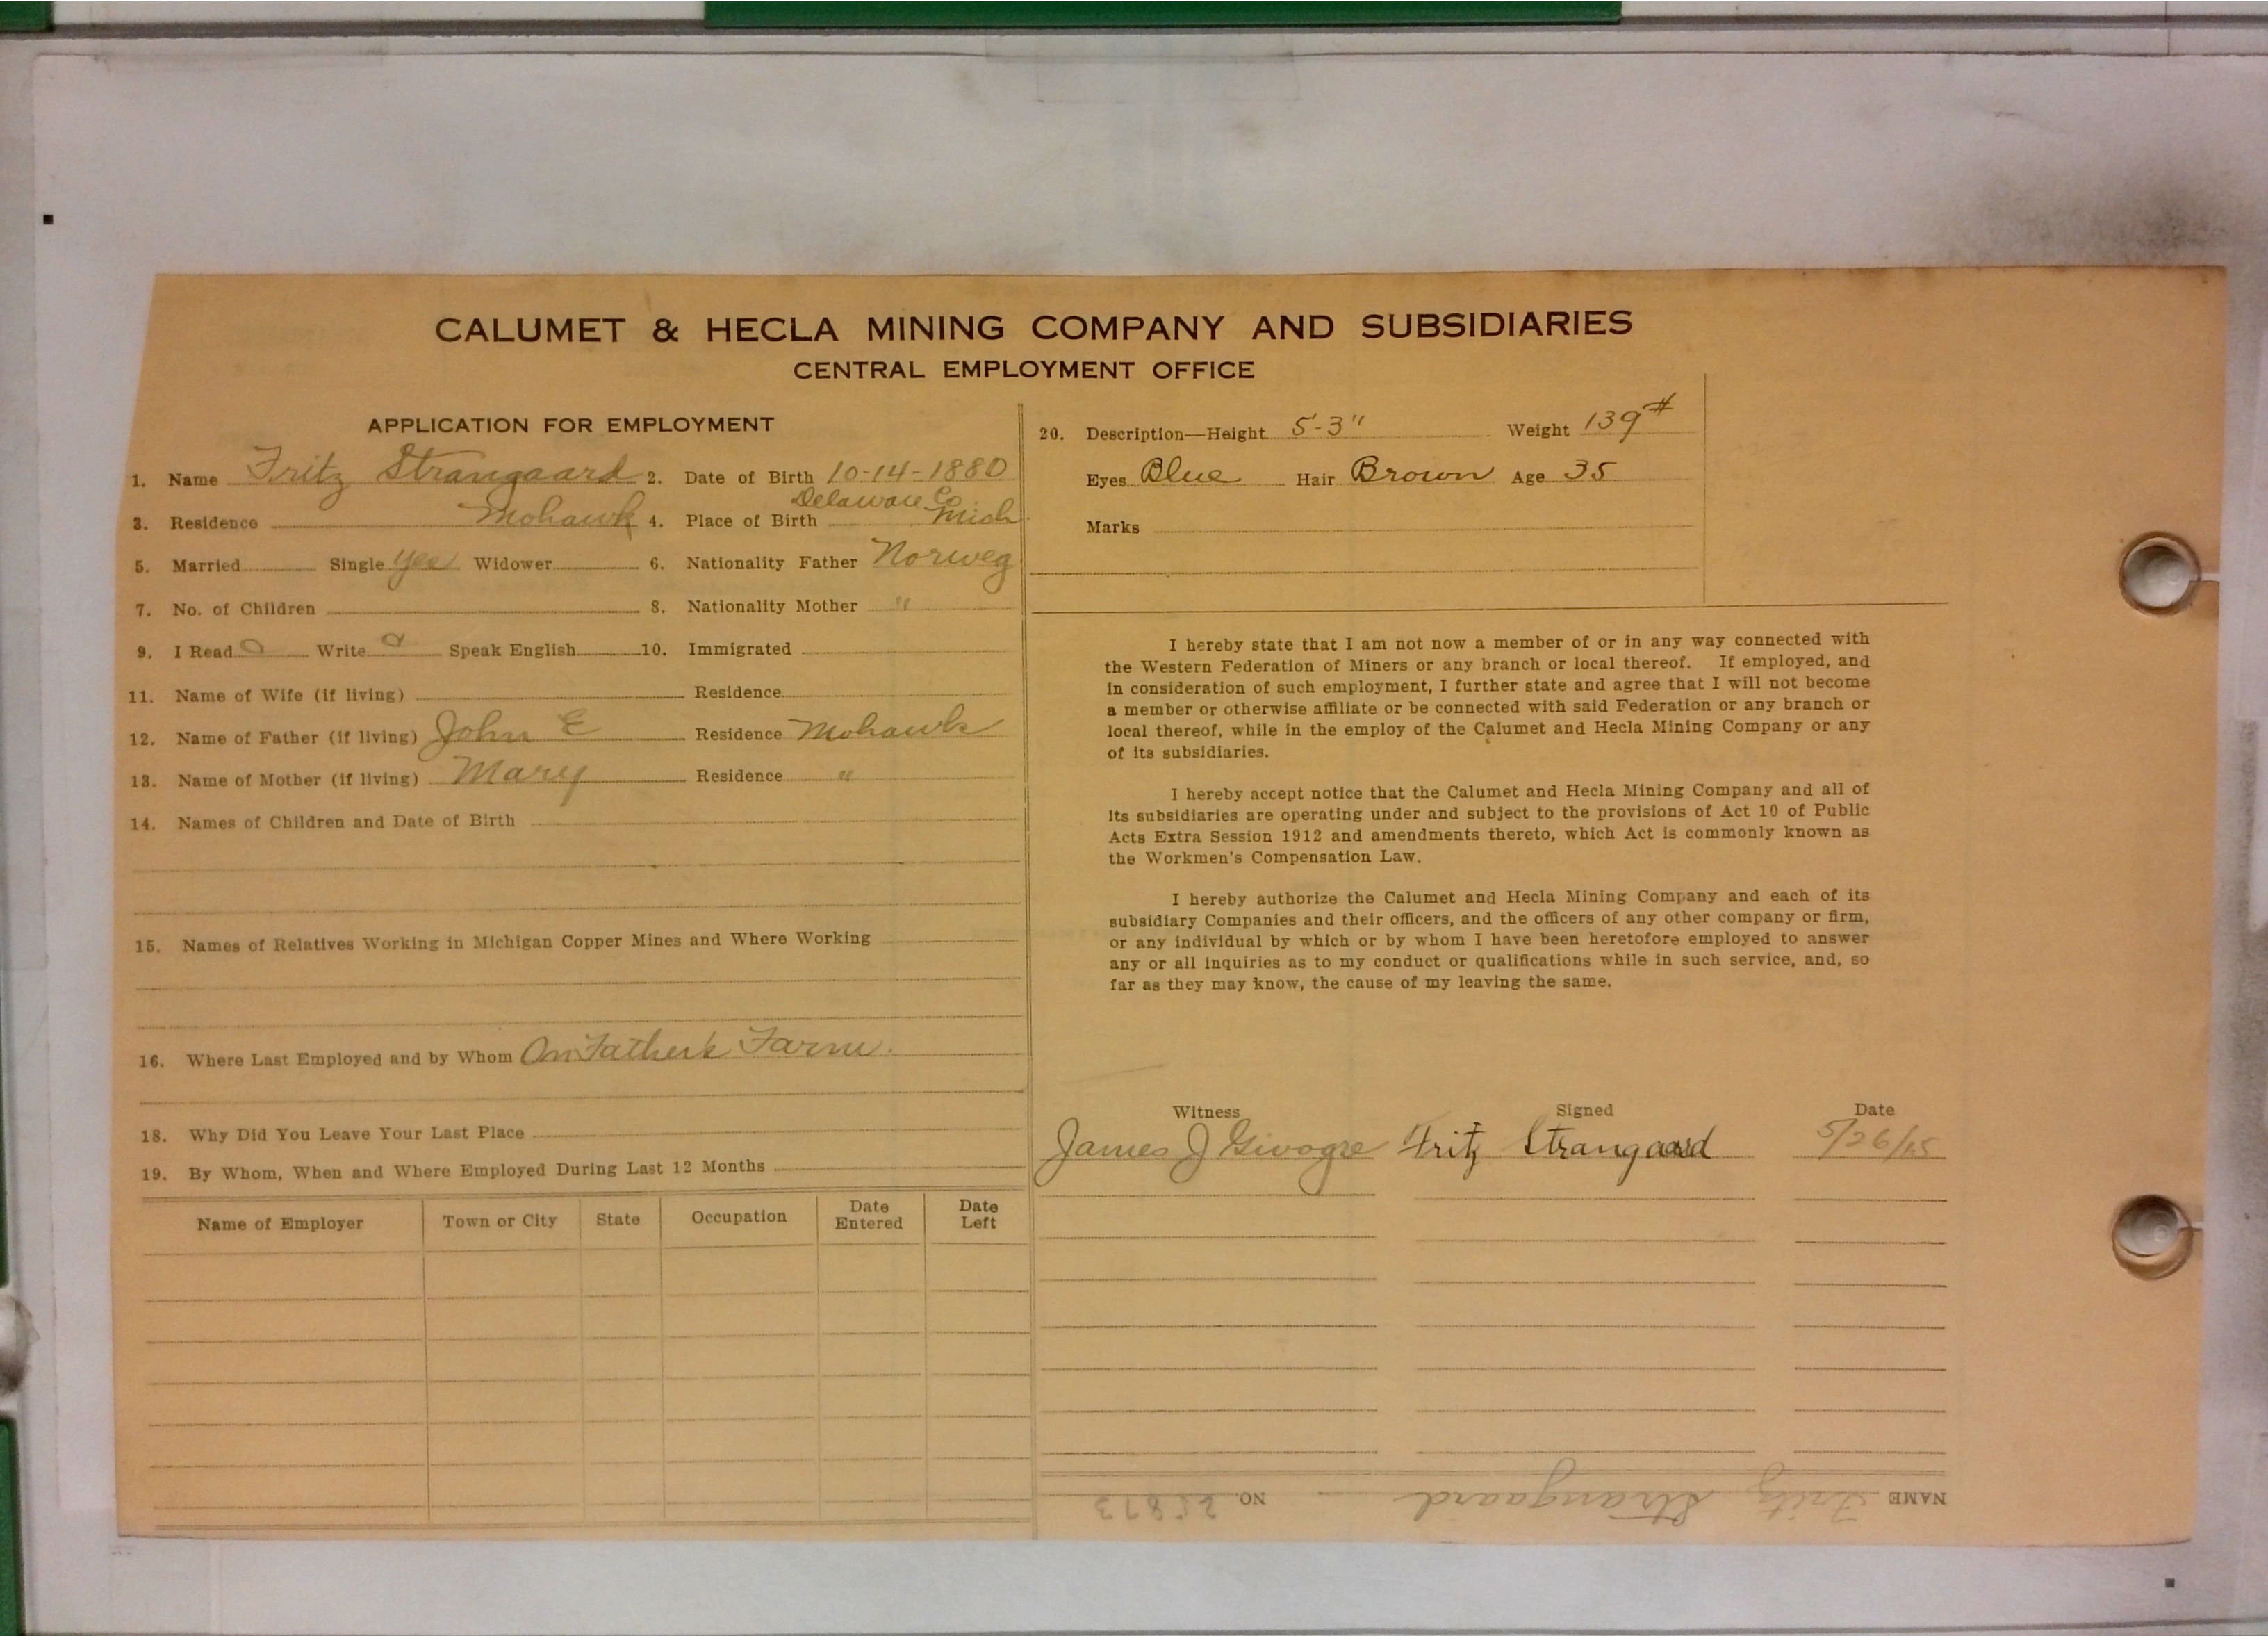 CALUMET & HECLA MINING COMPANY AND SUBSIDIARIES
CENTRAL EMPLOYMENT OFFICE
APPLICATION FOR EMPLOYMENT
1. Name Fritz Strangaard 2. Date of Birth 10-14-1880
3. Residence Mohawk 4. Place of Birth Delaware Co Mich
5. Married Single yes Widower 6. Nationality Father Norweg
7. No. of Children 8. Nationality Mother "
9. I Read Write Speak English 10. Immigrated
11. Name of Wife (if living) Residence
12. Name of Father (if living) John E Residence Mohawk
13. Name of Mother (if living) Mary Residence "
14. Names of Children and Date of Birth
15. Names of Relatives Working in Michigan Copper Mines and Where Working
16. Where Last Employed and by Whom On Father's Farm.
18. Why Did You Leave Your Last Place
19. By Whom, When and Where Employed During Last 12 Months
Name of Employer Town or City State Occupation Date Entered Date Left
20. Description—Height 5-3" Weight 139#
Eyes Blue Hair Brown Age 35
Marks
I hereby state that I am not now a member of or in any way connected with
the Western Federation of Miners or any branch or local thereof. If employed, and
in consideration of such employment, I further state and agree that I will not become
a member or otherwise affiliate or be connected with said Federation or any branch or
local thereof, while in the employ of the Calumet and Hecla Mining Company or any
of its subsidiaries.
I hereby accept notice that the Calumet and Hecla Mining Company and all of
its subsidiaries are operating under and subject to the provisions of Act 10 of Public
Acts Extra Session 1912 and amendments thereto, which Act is commonly known as
the Workmen's Compensation Law.
I hereby authorize the Calumet and Hecla Mining Company and each of its
subsidiary Companies and their officers, and the officers of any other company or firm,
or any individual by which or by whom I have been heretofore employed to answer
any or all inquiries as to my conduct or qualifications while in such service, and, so
far as they may know, the cause of my leaving the same.
Witness Signed Date
James J Fritz Strangaard 5/26/15
NAME Fritz Strangaard NO. 25873